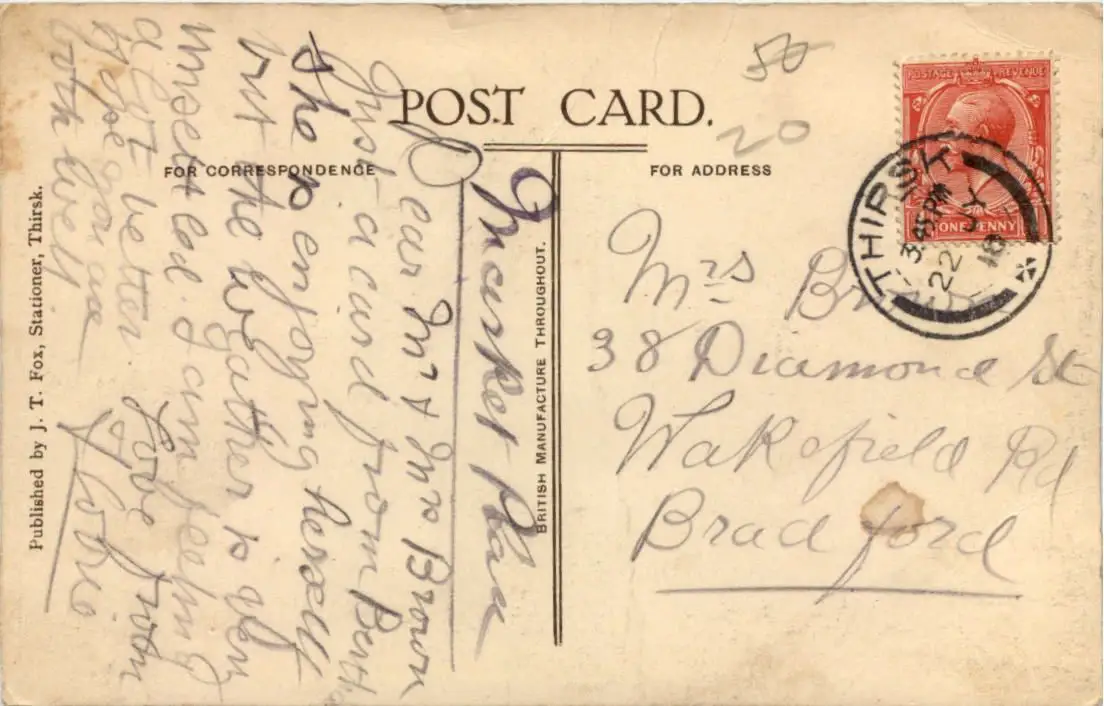 POST CARD.
FOR CORRESPONDENCE
FOR ADDRESS
Published by J. T. Fox, Stationer, Thirsk.
BRITISH MANUFACTURE THROUGHOUT.
POSTAGE REVENUE
ONE PENNY
THIRSK
3 45 PM
22 JY
18
50
20
Market Place
Dear Mr & Mrs Brown
Just a card from Bertha
She is enjoying herself
but the weather is very
unsettled. I am feeling
a lot better.
hope you are
both well
Love from
Mrs
38 Diamond St
Wakefield Rd
Bradford